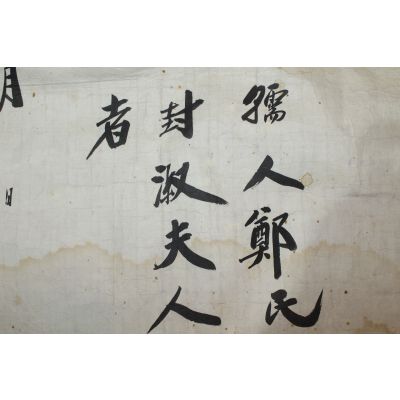 孺人鄭氏
封淑夫人
者
月日